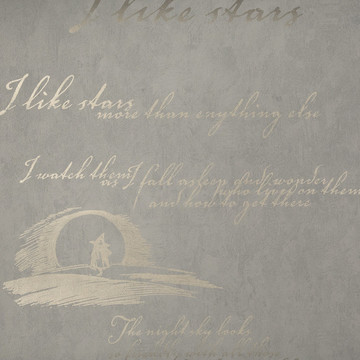 I like stars
I like stars
more than anything else
I watch them
as I fall asleep and wonder
who lives on them
and how to get there
The night sky looks